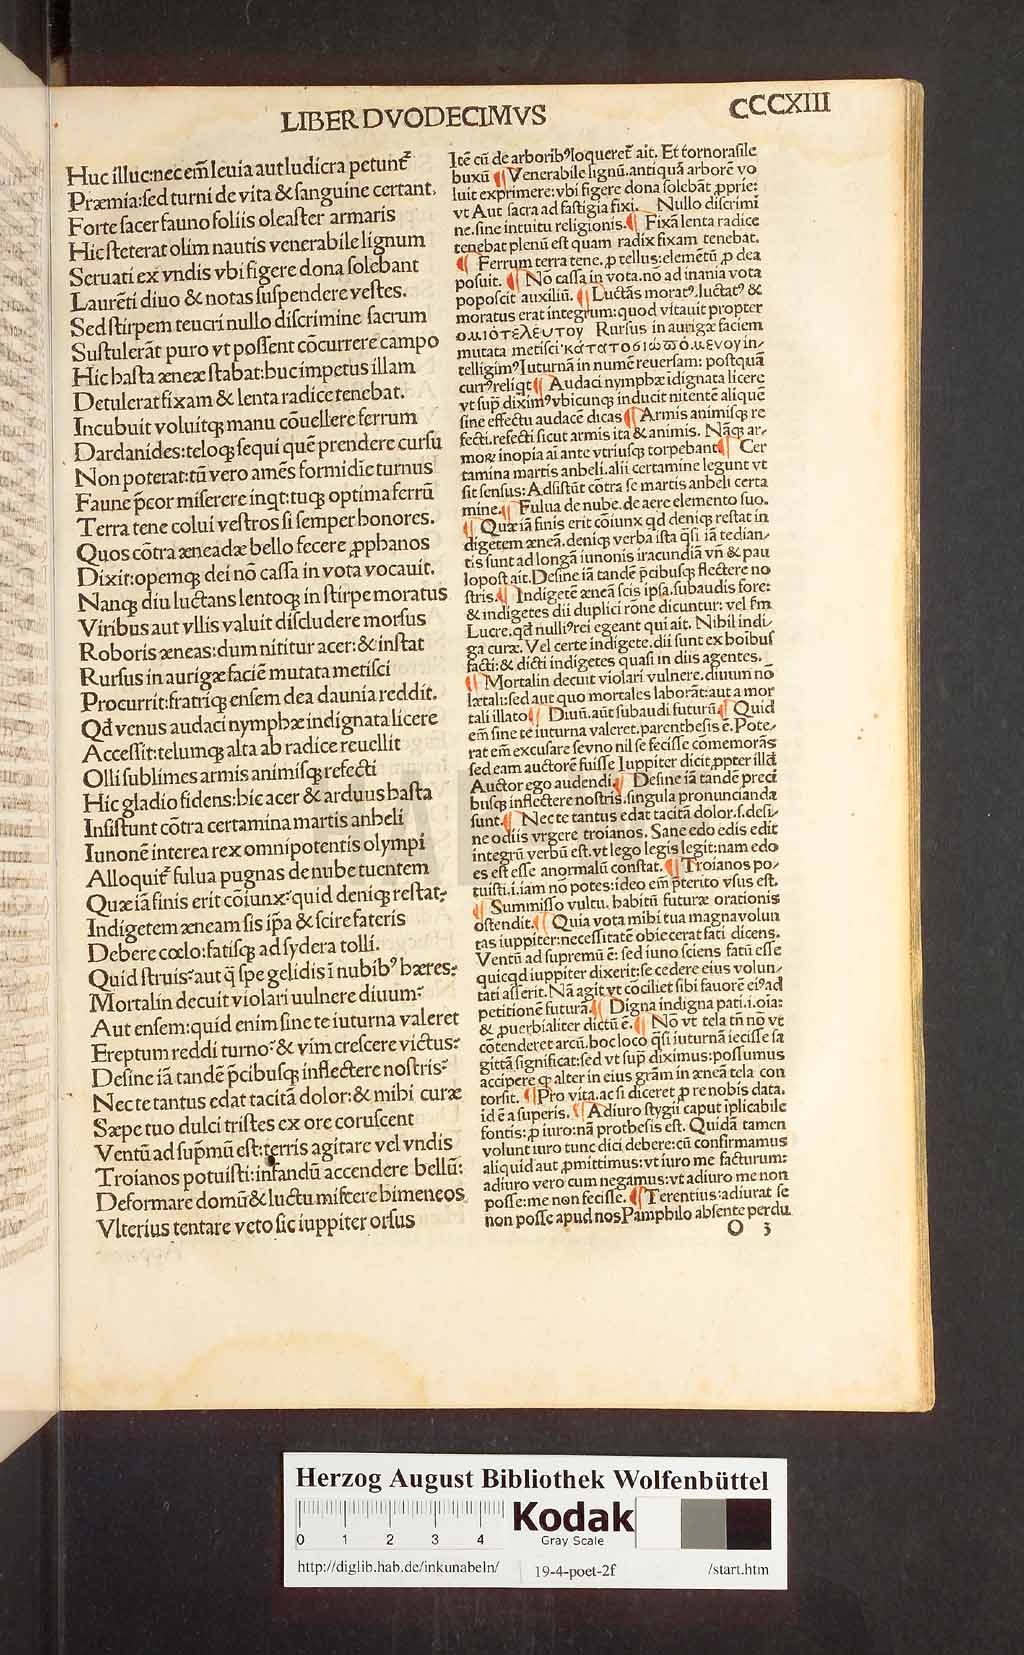 LIBER DVODECIMVS
CCCXIII
Huc illuc:nec em̄ leuia aut ludicra petunt᷑
Præmia:sed turni de vita & sanguine certant.
Forte sacer fauno foliis oleaster armaris
Hic steterat olim nautis venerabile lignum
Seruati ex vndis vbi figere dona solebant
Laurēti diuo & notas suspendere vestes.
Sed stirpem teucri nullo discrimine sacrum
Sustulerāt puro vt possent cōcurrere campo
Hic hasta æneæ stabat:huc impetus illam
Detulerat fixam & lenta radice tenebat.
Incubuit voluitqꝫ manu cōuellere ferrum
Dardanides:teloqꝫ sequi quē prendere cursu
Non poterat:tū vero amēs formidīe turnus
Faune p̄cor miserere inqt:tuqꝫ optima ferrū
Terra tene colui vestros si semper honores.
Quos cōtra æneadæ bello fecere ꝓphanos
Dixit:opemqꝫ dei nō cassa in vota vocauit.
Nanqꝫ diu luctans lentoqꝫ in stirpe moratus
Viribus aut vllis valuit discludere morsus
Roboris æneas:dum nititur acer:& instat
Rursus in aurigæ faciē mutata metisci
Procurrit:fratriqꝫ ensem dea daunia reddit.
Qd̄ venus audaci nymphæ indignata licere
Accessit:telumqꝫ alta ab radice reuellit
Olli sublimes armis animisqꝫ refecti
Hic gladio fidens:hic acer & arduus hasta
Insistunt cōtra certamina martis anheli
Iunonē interea rex omnipotentis olympi
Alloquit᷑ fulua pugnas de nube tuentem
Quæ iā finis erit cōiunx:quid deniqꝫ restat:
Indigetem æneam sis ip̄a & scire fateris
Debere cœlo:fatisqꝫ ad sydera tolli.
Quid struis:aut q̄ spe gelidis ī nubibꝰ hæres:
Mortalin decuit violari uulnere diuum:
Aut ensem:quid enim sine te iuturna valeret
Ereptum reddi turno:& vim crescere victus:
Desine iā tandē p̄cibusqꝫ inflectere nostris:
Nec te tantus edat tacitā dolor:& mihi curæ
Sæpe tuo dulci tristes ex ore coruscent
Ventū ad sup̄mū est:terris agitare vel vndis
Troianos potuisti:infandū accendere bellū:
Deformare domū & luctu miscere himeneos
Vlterius tentare veto sic iuppiter orsus
Itē cū de arboribꝰ loqueret᷑ ait. Et tornorasile
buxū ¶ Venerabile lignū.antiquā arborē vo
luit exprimere:vbi figere dona solebāt ꝓprie:
vt Aut sacra ad fastigia fixi. Nullo discrimi
ne.sine intuitu religionis.¶ Fixā lenta radice
tenebat plenū est quam radix fixam tenebat.
¶ Ferrum terra tene.ꝓ tellus:elemētū ꝓ dea
posuit. ¶ Nō cassa in vota.nō ad inania vota
poposcit auxiliū. ¶ Luctās moratꝰ.luctatꝰ &
moratus erat integrum:quod vitauit propter
ομιοτελευτου Rursus in aurigæ faciem
mutata metisci κατα το σιωπόμενου in-
telligimꝰ Iuturnā in numē reuersam: postquā
currꝰ reliqt ¶ Audaci nymphæ idignata licere
vt sup̄ diximꝰ vbicunqꝫ inducit nitentē aliquē
sine effectu audacē dicas ¶ Armis animisqꝫ re
fecti.refecti sicut armis ita & animis. Nāqꝫ ar-
moꝝ inopia ai ante vtriusqꝫ torpebant ¶ Cer
tamina martis anheli.alii certamine legunt vt
sit sensus: Adsistūt cōtra se martis anheli certa
mine.¶ Fulua de nube.de aere elemento suo.
¶ Quæ iā finis erit cōiunx qd deniqꝫ restat in
digetem æneā.deniqꝫ verba ista q̄si iā tedian-
tis sunt ad longā iunonis iracundiā vn̄ & pau
lopost ait.Desine iā tandē p̄cibusqꝫ flectere no
stris.¶ Indigetē æneā scis ipsa.subaudis fore:
& indigetes dii duplici rōne dicuntur: vel fm
Lucre.qd nulliꝰ rei egeant qui ait. Nihil indi-
ga curæ. Vel certe indigete.dii sunt ex hoibus
facti:& dicti indigetes quasi in diis agentes.
¶ Mortalin decuit violari vulnere.diuum nō
lætali:sed aut quo mortales laborāt:aut a mor
tali illato ¶ Diuū.aūt subaudi futurū ¶ Quid
em̄ sine te iuturna valeret.parenthesis ē. Pote-
rat em̄ excusare se vno nil se fecisse cōmemorās
sed eam auctorē fuisse Iuppiter dicit.ꝓpter illd
Auctor ego audendi.¶ Desine iā tandē preci
busqꝫ inflectere nostris.singula pronuncianda
sunt.¶ Nec te tantus edat tacitā dolor.s.desi-
ne odiis vrgere troianos. Sane edo edis edit
integrū verbū est.vt lego legis legit:nam edo
es est esse anormalū constat.¶ Troianos po-
tuisti.i.iam nō potes:ideo em̄ p̄terito vsus est.
¶ Summisso vultu.habitū futuræ orationis
ostendit.¶ Quia vota mihi tua magna volun
tas iuppiter:necessitatē obiecerat fati dicens.
Ventū ad supremū ē: sed iuno sciens fatū esse
quicqd iuppiter dixerit:se cedere eius volun-
tati asserit. Nā agit vt cōciliet sibi fauorē eiꝰ ad
petitionē futurā.¶ Digna indigna pati.i.oīa:
& ꝓuerbialiter dictū ē.¶ Nō vt tela tn̄ nō vt
cōtenderet arcū.hoc loco q̄si iuturnā iecisse sa
gittā significat:sed vt sup̄ diximus:possumus
accipere qꝫ alter in eius gr̄am in æneā tela con
torsit. ¶ Pro vita.ac si diceret ꝓ re nobis data.
id ē a superis. ¶ Adiuro stygii caput iplicabile
fontis:ꝓ iuro:nā prothesis est. Quidā tamen
volunt iuro tunc dici debere:cū confirmamus
aliquid aut ꝓmittimus:vt iuro me facturum:
adiuro vero cum negamus:vt adiuro me non
posse:me non fecisse.¶ Terentius:adiurat se
non posse apud nos Pamphilo absente perdu
O 3
Herzog August Bibliothek Wolfenbüttel
0 1 2 3 4
Kodak
Gray Scale
http://diglib.hab.de/inkunabeln/ 19-4-poet-2f /start.htm